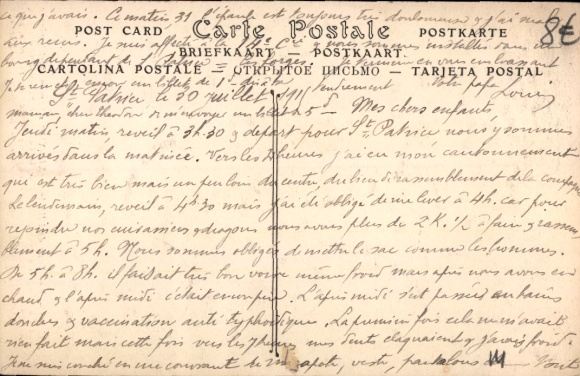 ce que j'avais. Ce matin 31 l'épaule est toujours très douloureuse & j'ai mal
aux reins. Je suis affecté à la & nous sommes installés dans un
8€
Carte Postale
POST CARD POSTKARTE
BRIEFKAART — POSTKAART.
CARTOLINA POSTALE — ОТКРЫТОЕ ПИСЬМО — TARJETA POSTAL
bourg dépendant de St Patrice = les Forges. Je termine en vous embrassant
tendrement Votre papa Louis
St Patrice le 30 juillet 1915 — Mes chers enfants
Jeudi matin réveil à 3h.30 & départ pour St Patrice où nous y sommes
arrivés dans la matinée. Vers les heures j'ai eu mon cantonnement
qui est très bien mais un peu loin du centre, du lieu de rassemblement de la compagnie
Le lendemain, réveil à 4h.30 mais j'ai été obligé de me lever à 4h. car pour
rejoindre nos cuirassiers & dragons nous avons plus de 2 K. ½ à faire & rassem
blement à 5h. Nous sommes obligés de mettre le sac comme les hommes.
De 5h. à 8h. il faisait très bon voire même froid mais après nous avons eu
chaud & l'après midi c'était encore pire. L'après midi s'est passée en bains
douches & vaccination anti typhoïdique. La première fois cela ne m'avait
rien fait mais cette fois vers les 7 heures mes dents claquaient & j'avais froid.
J'ai mis couché en me couvrant de ma capote, veste, pantalons — tout